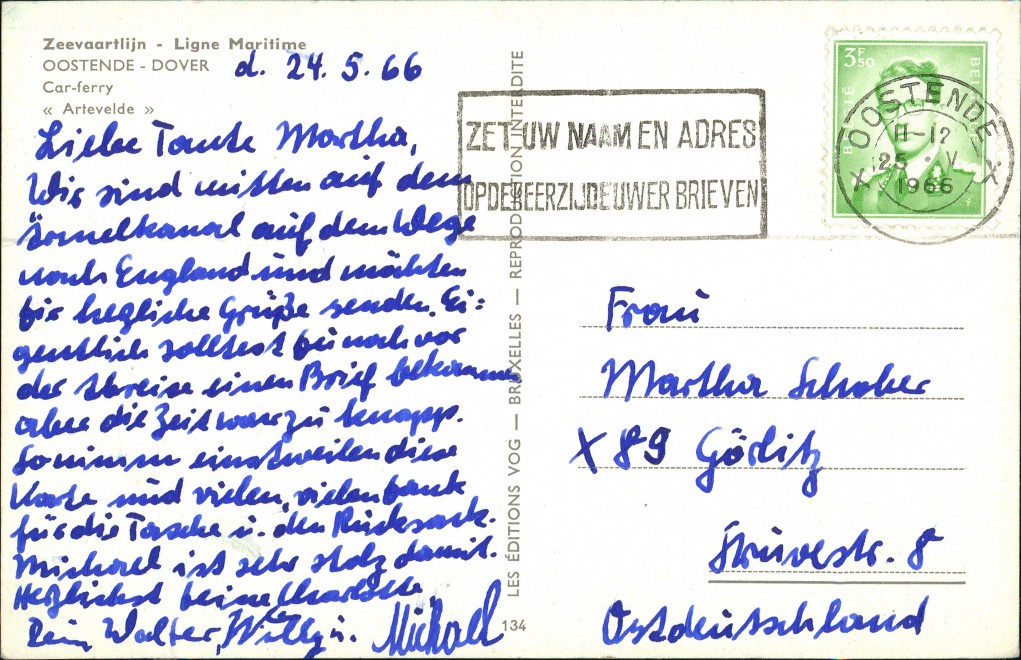 Zeevaartlijn - Ligne Maritime
OOSTENDE - DOVER
Car-ferry
« Artevelde »
d. 24. 5. 66
Liebe Tante Martha,
Wir sind mitten auf dem
Ärmelkanal auf dem Wege
nach England und möchten
Dir herzliche Grüße senden. Ei=
gentlich solltest Du noch vor
der Abreise einen Brief bekommen
aber die Zeit war zu knapp.
So nimm einstweilen diese
Karte und vielen, vielen Dank
für die Tasche u. den Rucksack.
Michael ist sehr stolz damit.
Herzlichst Deine Charlotte
Dein Walter, Willy u. Michael
LES ÉDITIONS VOG — BRUXELLES — REPRODUCTION INTERDITE
134
ZET UW NAAM EN ADRES
OP DE KEERZIJDE UWER BRIEVEN
3F50
BELGIË
OOSTENDE
11-12
25 . V
1966
X X
Frau
Martha Schober
X 89 Görlitz
Struvestr. 8
Ostdeutschland